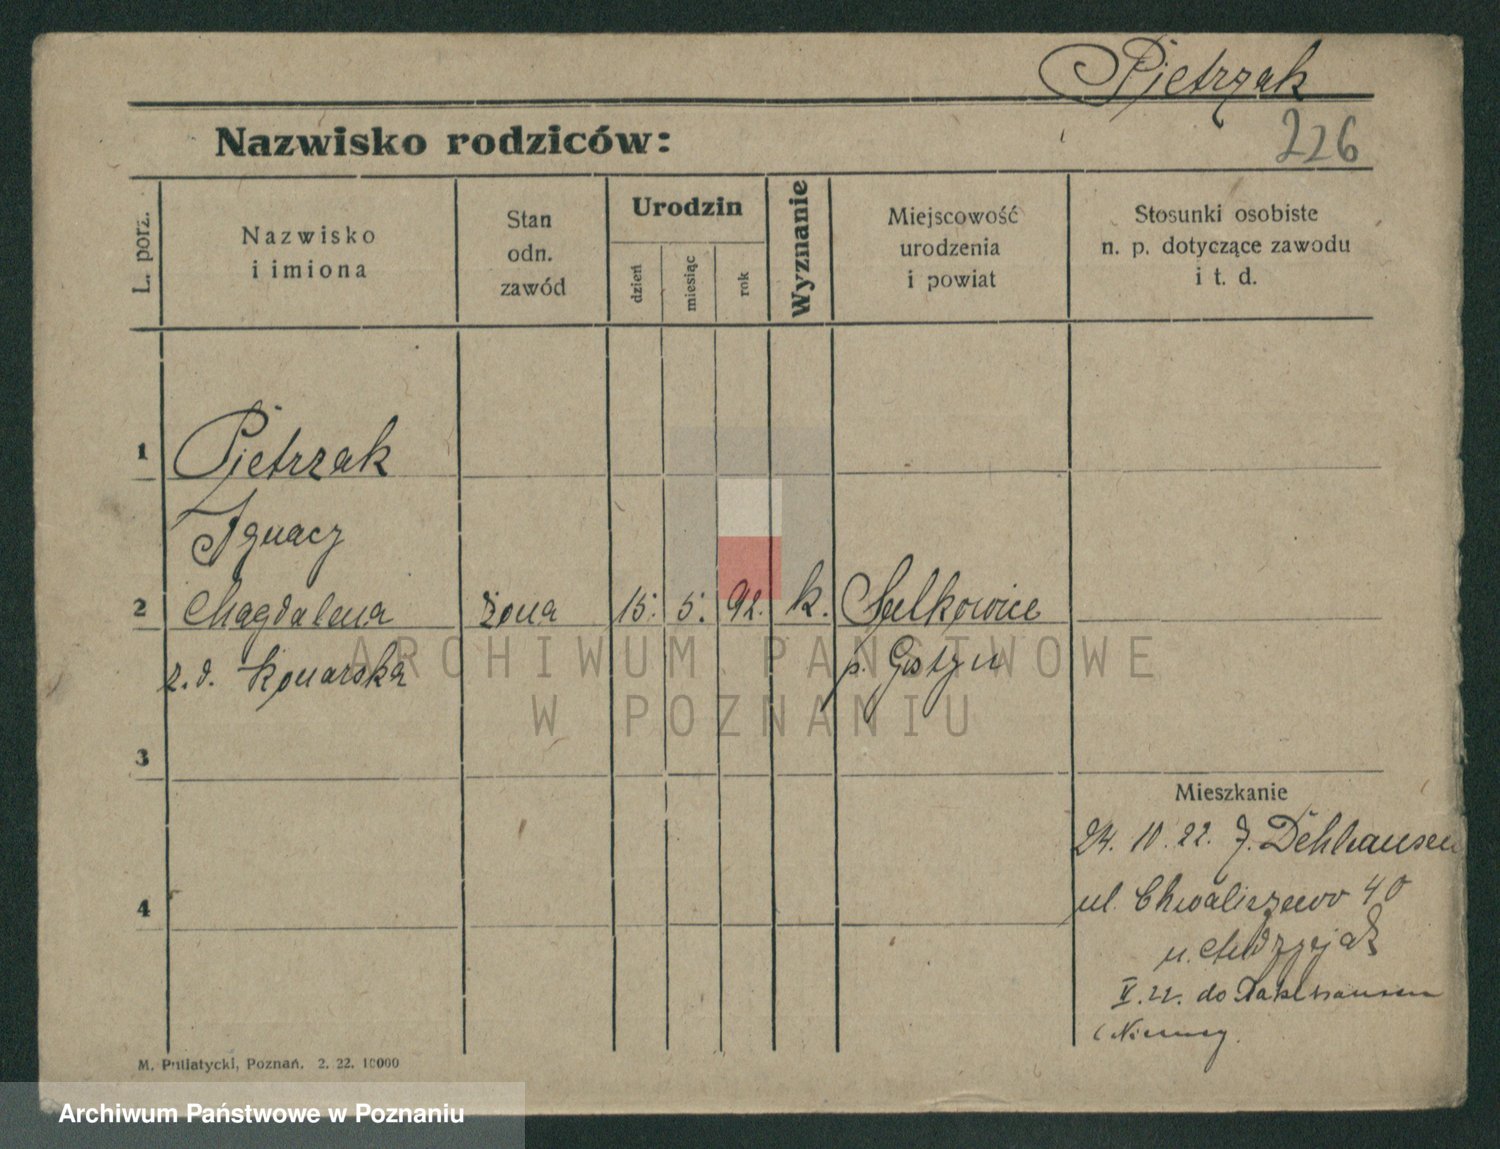 Pietrzak
Nazwisko rodziców:
226
L. porz.
Nazwisko
i imiona
Stan
odn.
zawód
Urodzin
dzień
miesiąc
rok
Wyznanie
Miejscowość
urodzenia
i powiat
Stosunki osobiste
n. p. dotyczące zawodu
i t. d.
1
Pietrzak
Ignacy
2
Magdalena żona 15. 5. 92. k. Sulkowice
z. d. Konarska p. Gostyn
3
4
Mieszkanie
24. 10. 22. z. Dehlhausen
ul. Chwaliszewo 40
u. Andrzejak
V. 22. do
(Niemcy.
M. Putiatycki, Poznań. 2. 22. 10000
ARCHIWUM PAŃSTWOWE
W POZNANIU
Archiwum Państwowe w Poznaniu